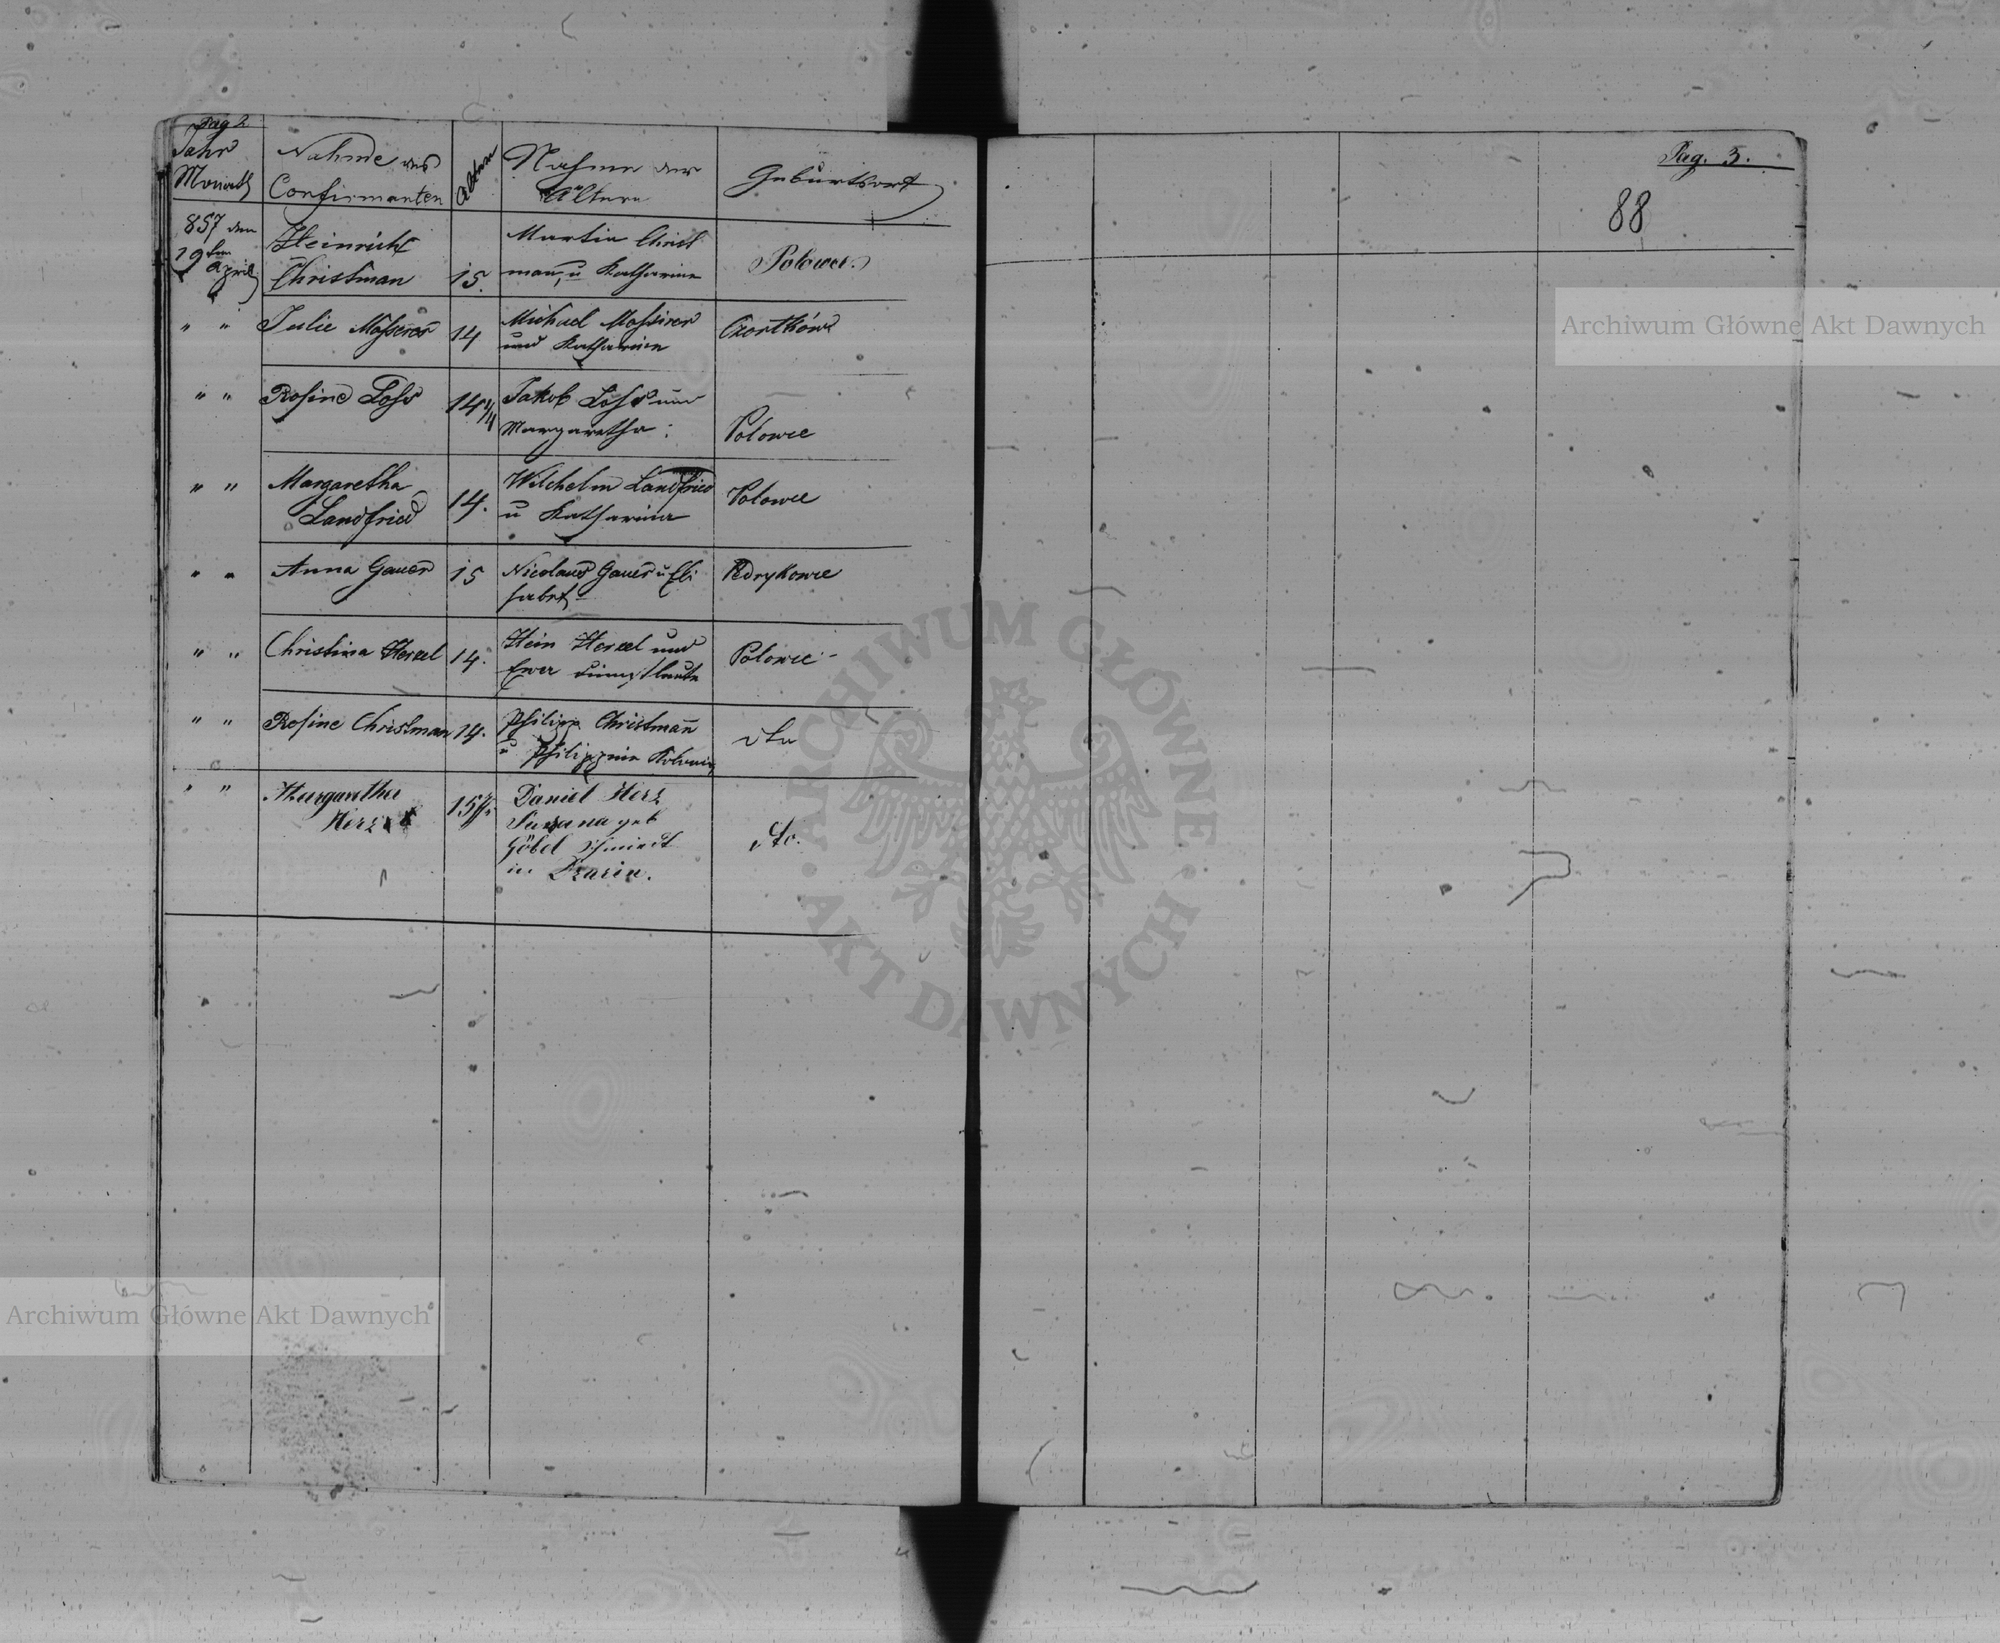 Pag 2
Jahr Monath
Nahme des Confirmanten
Altern
Nahmen der Ältern
Geburtsort
857 den 19ten April
Heinrich Christman
15.
Martin Christ
man, u Katharina
Polowce.
" "
Julie Mosserer
14
Michael Mosserer
und Katharina
Czortków
" "
Rosine Loss
14 1/4
Jakob Loss und
Margaretha
Polowce
" "
Margaretha
Landfried
14.
Wilchelm Landfried
u Katharina
Polowce
" "
Anna Gauer
15
Nicolaus Gauer u Eli
sabet
Pedrykowce
" "
Christina Herzel
14.
Hein Herzel und
Ewa
Polowce
" "
Rosine Christman
14.
Philipp Christmañ
u Philippina
dto
" "
Margaretha
Herz
15
Daniel Herz
Susana geb
Göbel Schmiedt
in
dto.
Pag. 3.
88
Archiwum Główne Akt Dawnych
ARCHIWUM GŁÓWNE
AKT DAWNYCH
Archiwum Główne Akt Dawnych